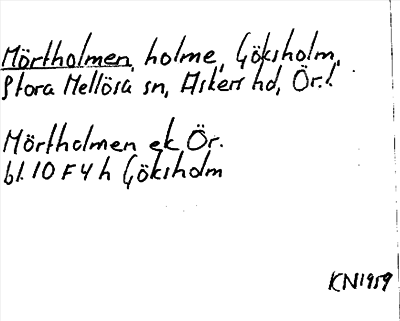 Mörtholmen, holme, Göksholm,
Stora Mellösa sn, Askers hd, Ör. l.
Mörtholmen ek Ör.
bl. 10 F 4 h Göksholm
KN1959